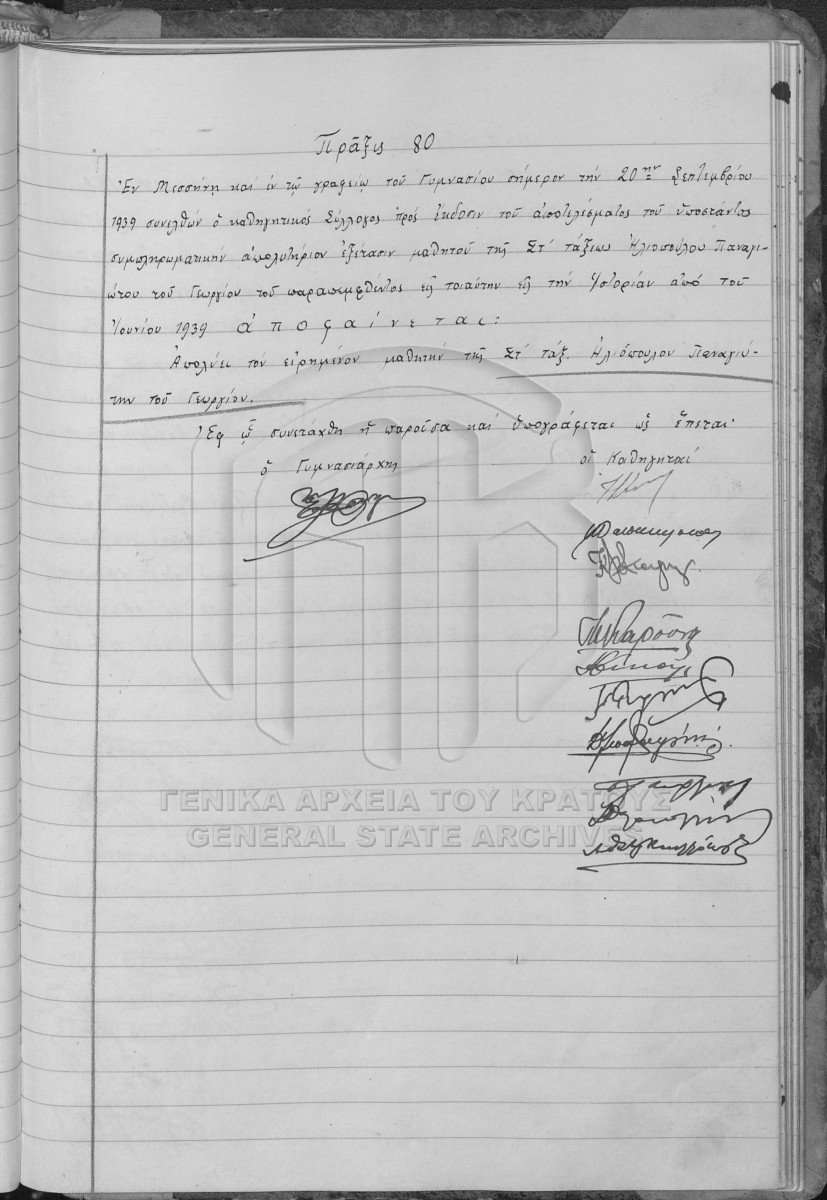 Πρᾶξις 80
Ἐν Μεσσήνῃ καί ἐν τῷ γραφείῳ τοῦ Γυμνασίου σήμερον τήν 20ην Σεπτεμβρίου
1939 συνελθών ὁ καθηγητικός Σύλλογος πρός ἔκδοσιν τοῦ ἀποτελέσματος τοῦ ὑποστάντος
συμπληρωματικήν ἀπολυτήριον ἐξέτασιν μαθητοῦ τῆς Στ΄ τάξεως Ἡλιοπούλου Παναγι-
ώτου τοῦ Γεωργίου τοῦ παραπεμφθέντος εἰς τοιαύτην εἰς τήν Ἱστορίαν ἀπό τοῦ
Ἰουνίου 1939 ἀποφαίνεται:
Ἀπολύει τόν εἰρημένον μαθητήν τῆς Στ΄ τάξ. Ἡλιόπουλον Παναγιώ-
την τοῦ Γεωργίου.
Ἐφ ᾧ συνετάχθη ἡ παροῦσα καί ὑπογράφεται ὡς ἕπεται.
ὁ Γυμνασιάρχης
οἱ Καθηγηταί
ΓΕΝΙΚΑ ΑΡΧΕΙΑ ΤΟΥ ΚΡΑΤΟΥΣ
GENERAL STATE ARCHIVES